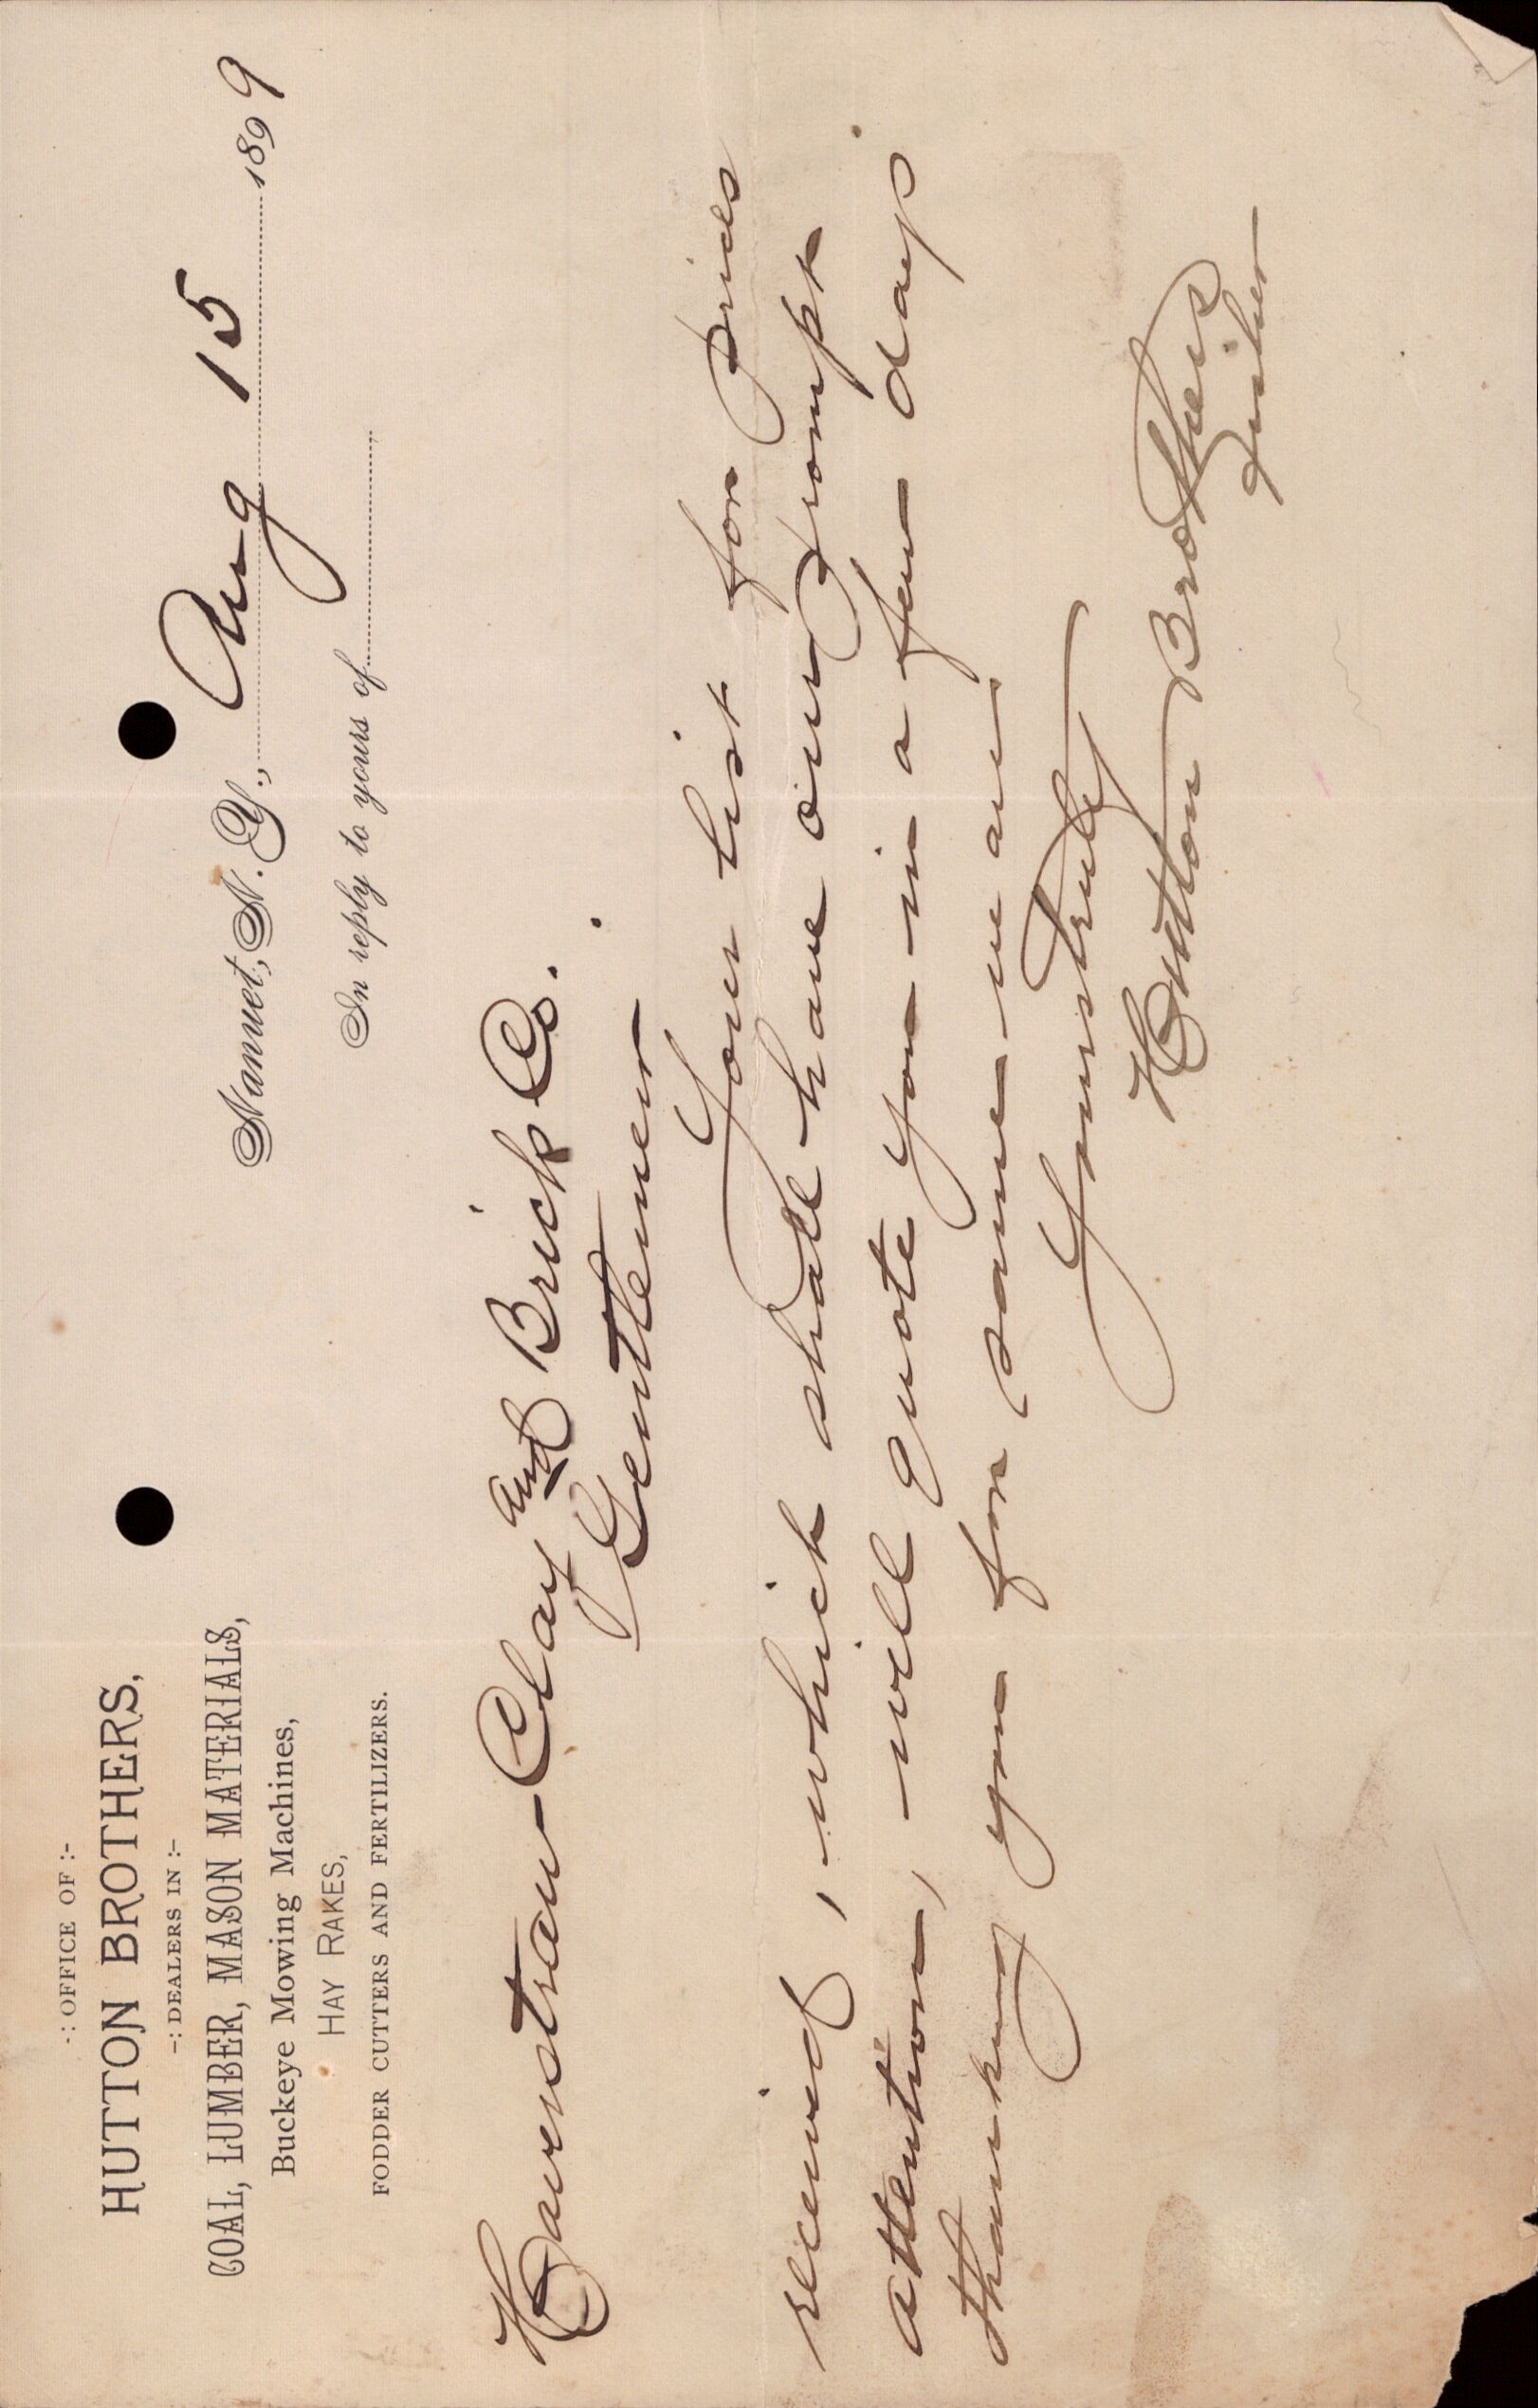 -: OFFICE OF :-
HUTTON BROTHERS,
-: DEALERS IN :-
COAL, LUMBER, MASON MATERIALS,
Buckeye Mowing Machines,
HAY RAKES,
FODDER CUTTERS AND FERTILIZERS.
Nanuet, N. Y., Aug 15 1899
In reply to yours of
Haverstraw Clay and Brick Co.
Gentlemen
Your list for prices
received, which shall have our prompt
attention, will quote you in a few days
thanking you for same we are
Yours truly
Hutton Brothers